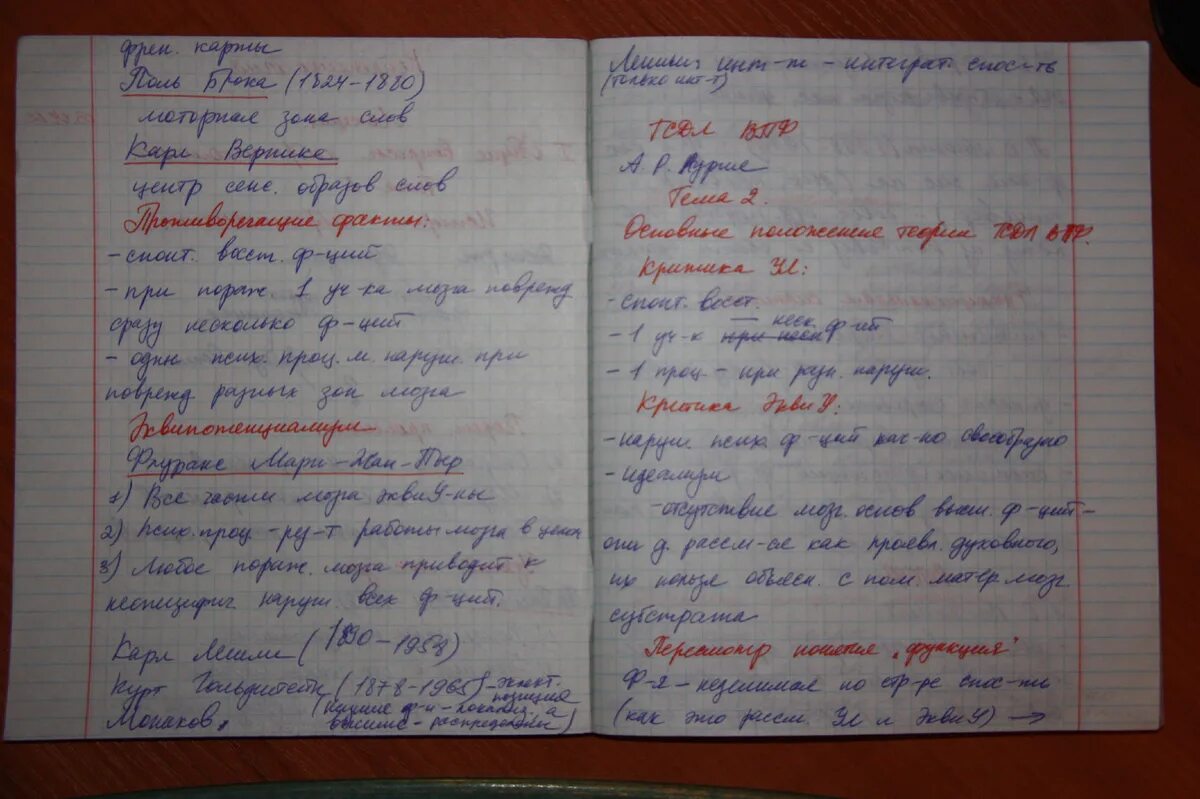 френ. карты
Поль Брока (1824-1880)
моторная зона слов
Карл Вернике
центр сенс. образов слов
Противоречащие факты:
- спонт. восст. ф-ций
- при пораж. 1 уч-ка мозга поврежд
сразу несколько ф-ций
- один псих. проц. м. наруш. при
поврежд разных зон мозга
Эквипотенциализм
Флуранс Мари-Жан-Пьер
1) Все части мозга экви-ны
2) Псих. проц - рез-т работы мозга в целом
3) Любое пораж. мозга приводит к
неспецифич наруш. всех ф-ций.
Карл Лешли (1890-1958)
Курт Гольдштейн (1878-1965) - эклект.
позиция
Монаков.
(низшие ф-и - локальн, а
высшие - распределены)
Лешли: инт-т - интеграт. спос-ть
(только инт-т)
ТСДЛ ВПФ
А. Р. Лурия
Тема 2.
Основные положения теории ТСДЛ ВПФ.
Критика УЛ:
- спонт. восст.
- 1 уч-к при неск неск. ф-ий
- 1 проц - при разн. наруш.
Критика Экви:
- наруш. псих. ф-ций кач-но своеобразно
- идеализм
- отсутствие мозг. основ высш. ф-ций -
они д. рассм-ся как проявл. духовного,
их нельзя объясн. с пом. матер. мозг
субстрата
Пересмотр понятия "функция"
Ф-я - неделимая по стр-ре спос-ть
(как это рассм. УЛ и Экви) →